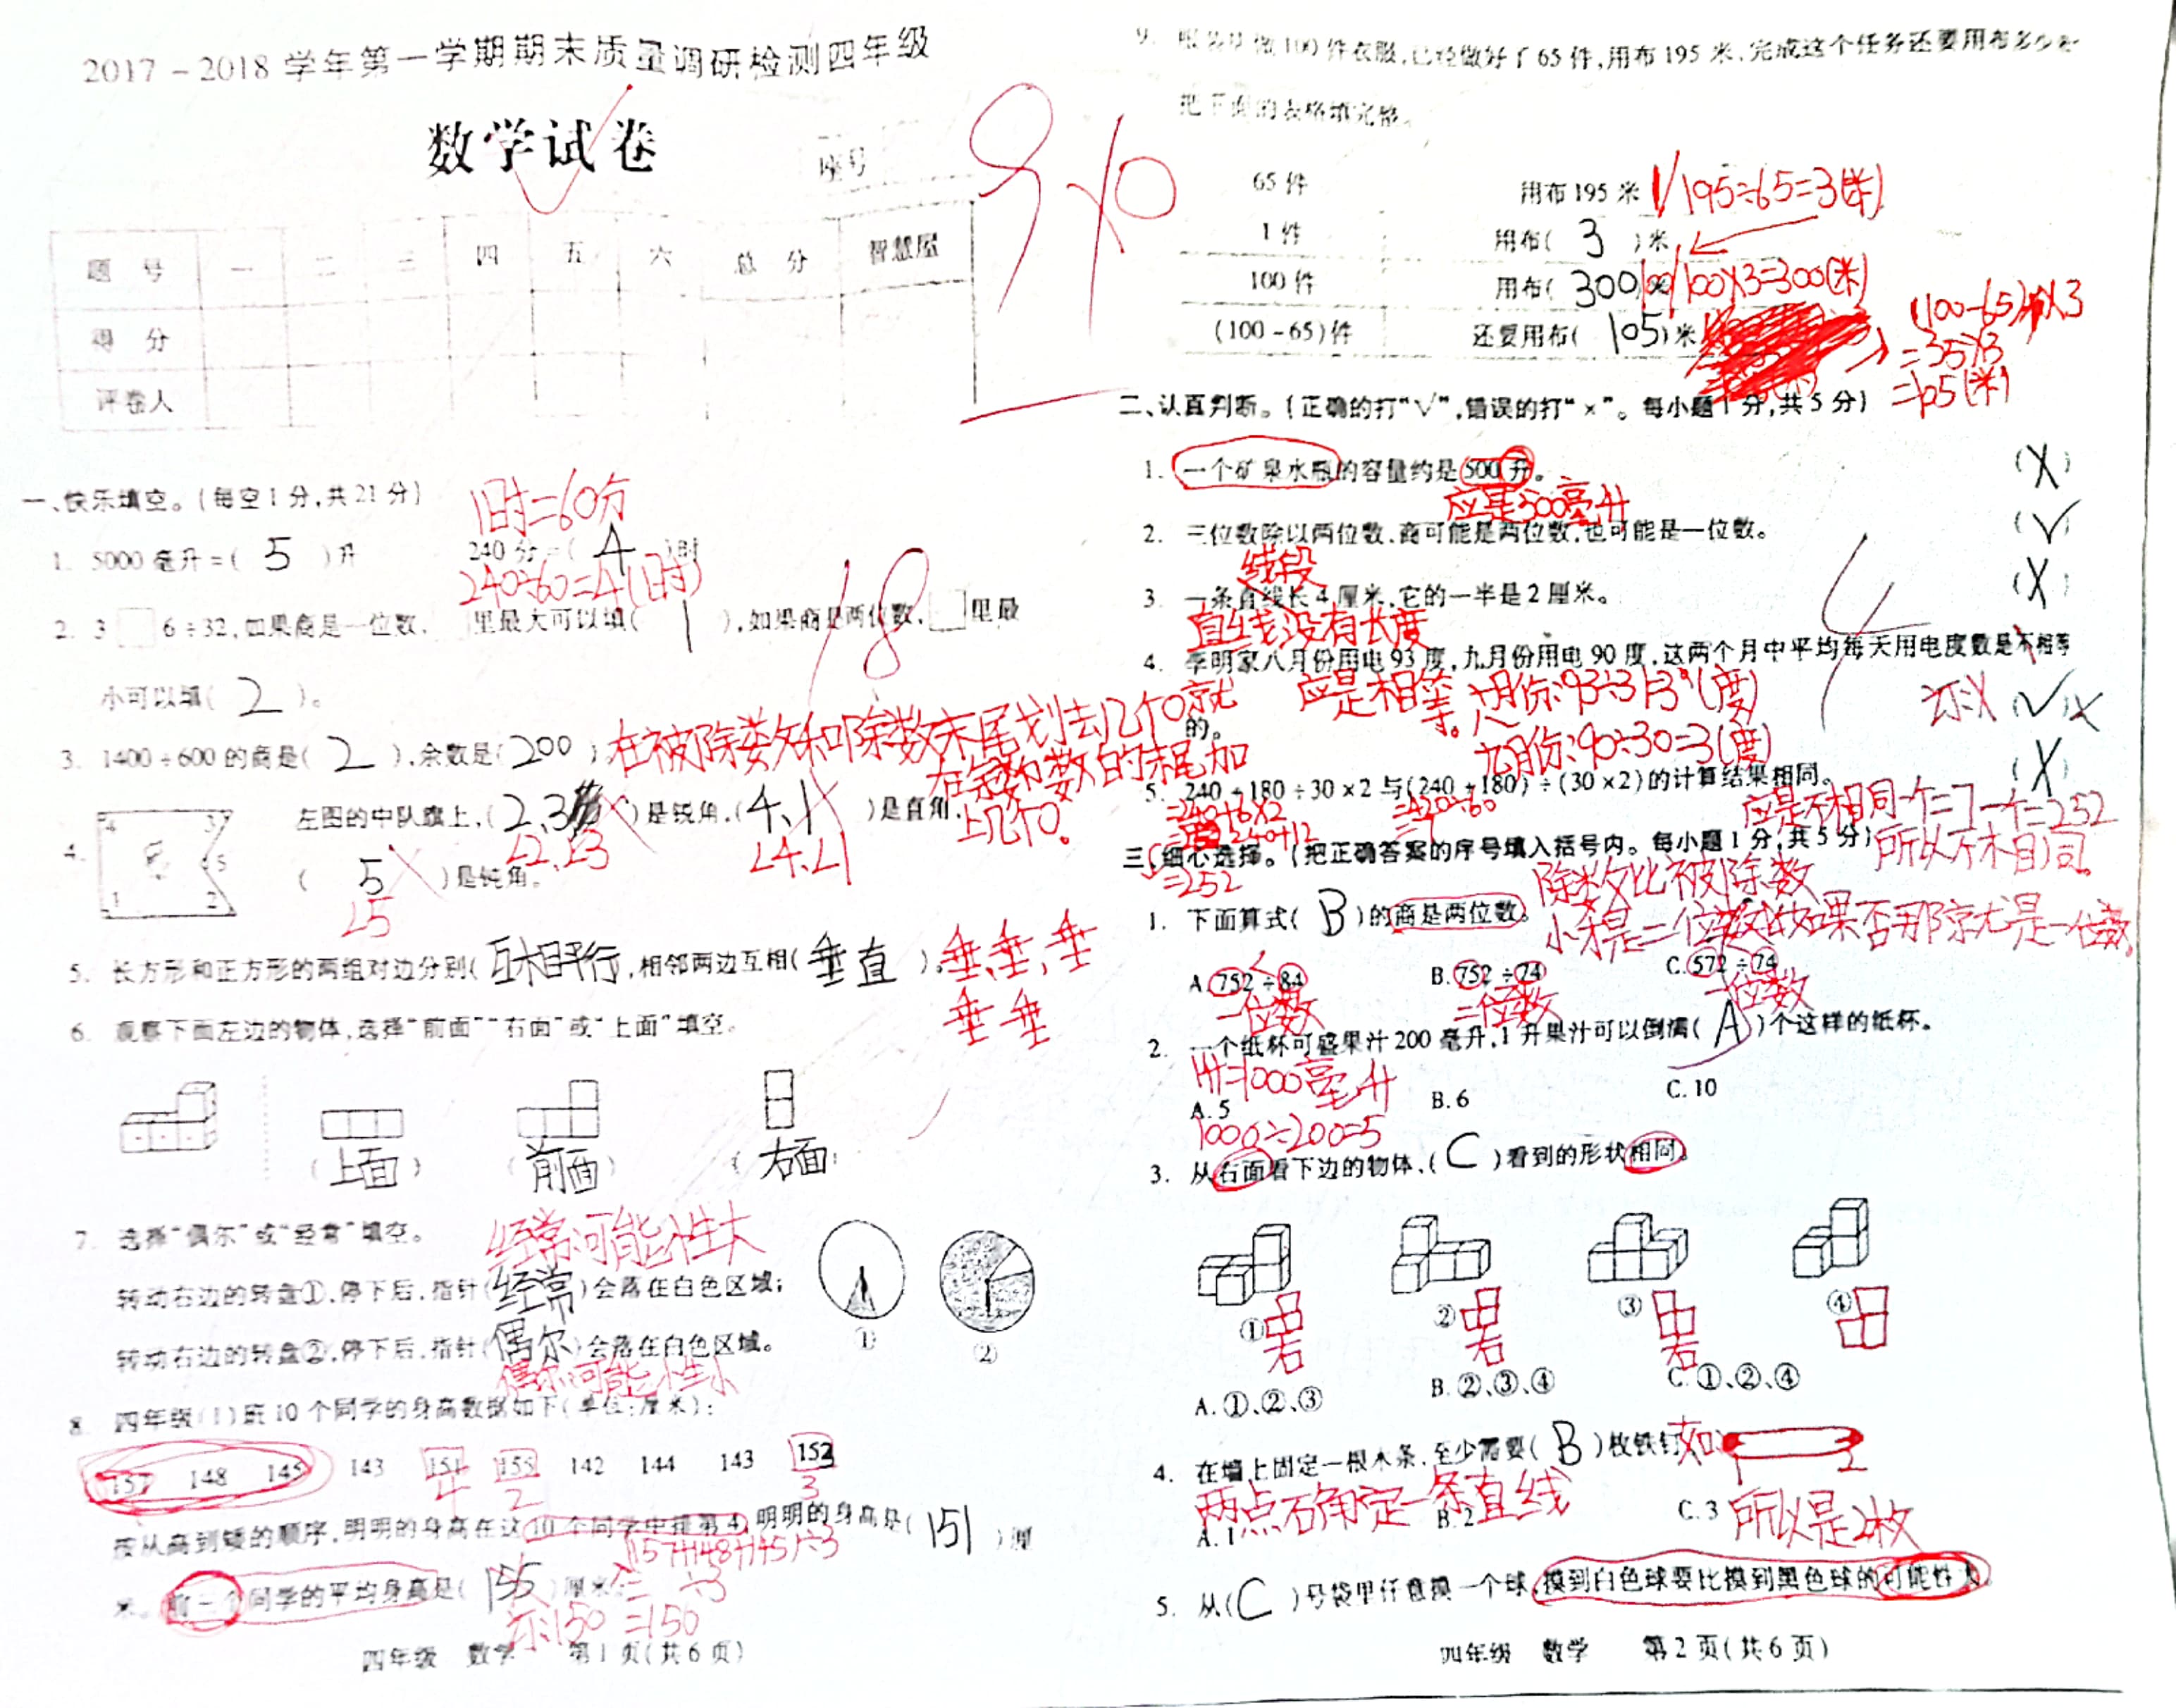 2017－2018 学年第一学期期末质量调研检测四年级
数学试卷
座号
90
题 号 一 二 三 四 五 六 总 分 智慧屋
得 分
评卷人
一、快乐填空。(每空1分,共21分)
1时=60分
1. 5000 毫升=( 5 )升 240 分=( 4 )时
240÷60=4(时)
2. 3□6÷32,如果商是一位数,□里最大可以填( 1 ),如果商是两位数,□里最
小可以填( 2 )。
18
3. 1400÷600 的商是( 2 ),余数是( 200 )
在被除数和除数末尾划去几个0就
在余数的末尾加
上几个0。
4. 左图的中队旗上,( 2、3 )是锐角,( 4、1 )是直角,
∠2、∠3 ∠4、∠1
( 5 )是钝角。
∠5
4 3 5 1 2
5. 长方形和正方形的两组对边分别( 互相平行 ,相邻两边互相( 垂直 )。
垂、垂、垂
垂 垂
6. 观察下面左边的物体,选择“前面”“右面”或“上面”填空。
(上面) (前面) (右面)
7. 选择“偶尔”或“经常”填空。
经常:可能性大
转动右边的转盘①,停下后,指针(经常)会落在白色区域;
转动右边的转盘②,停下后,指针(偶尔)会落在白色区域。
偶尔:可能性小
① ②
8. 四年级(1)班 10 个同学的身高数据如下(单位:厘米):
157 148 145 143 151 155 142 144 143 152
4 2 3
按从高到矮的顺序,明明的身高在这10个同学中排第4,明明的身高是( 151 )厘
(157+148+145)÷3
米。前三个同学的平均身高是( 155 )厘米。
=150
四年级 数学 第1页(共6页)
9. 做100件衣服,已经做好了65件,用布195米,完成这个任务还要用布多少米
把下面的表格填完整。
65件 用布195米 195÷65=3(米)
1件 用布( 3 )米
100件 用布( 300 )米 100×3=300(米)
(100－65)件 还要用布( 105 )米
(100-65)×3
=35×3
=105(米)
二、认真判断。(正确的打“√”,错误的打“×”。每小题1分,共5分)
1. 一个矿泉水瓶的容量约是500升。 (X)
应是500毫升
2. 三位数除以两位数,商可能是两位数,也可能是一位数。 (√)
线段
3. 一条直线长4厘米,它的一半是2厘米。 (X)
直线没有长度
4
4. 李明家八月份用电93度,九月份用电90度,这两个月中平均每天用电度数是不相等
的。 (√)
应是相等。八月份:93÷31=3(度)
九月份:90÷30=3(度)
5. 240+180÷30×2与(240+180)÷(30×2)的计算结果相同。 (X)
=240+6×2 =420÷60
=240+12 =7
=252
应是不相同一个=7一个=252
所以不相同。
三、细心选择。(把正确答案的序号填入括号内。每小题1分,共5分)
除数比被除数
1. 下面算式( B )的商是两位数。
A. 752÷84 B. 752÷74 C. 572÷74
一位数 二位数 一位数
2. 一个纸杯可盛果汁200毫升,1升果汁可以倒满( A )个这样的纸杯。
1升=1000毫升
A. 5 B. 6 C. 10
1000÷200=5
3. 从右面看下边的物体,( C )看到的形状相同。
① ② ③ ④
右 右 右
A. ①、②、③ B. ②、③、④ C. ①、②、④
4. 在墙上固定一根木条,至少需要( B )枚铁钉 如: 1 2
两点确定一条直线
A. 1 B. 2 C. 3
所以是2枚
5. 从( C )号袋里任意摸一个球,摸到白色球要比摸到黑色球的可能性大。
四年级 数学 第2页(共6页)